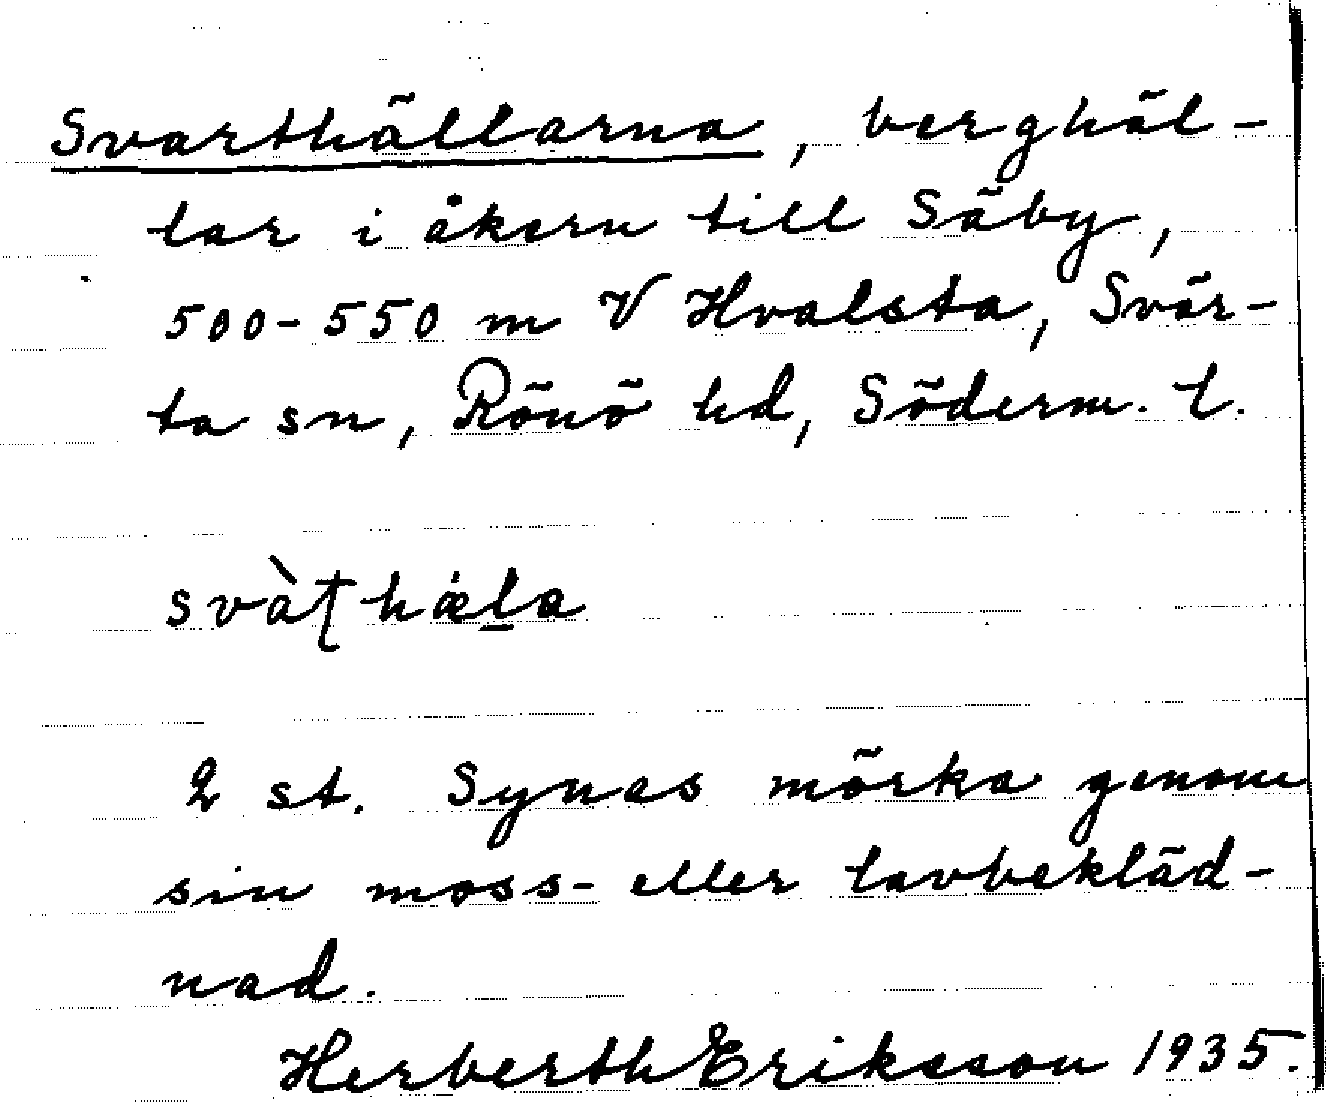 Svarthällarna, berghäl-
lar i åkern till Säby,
500-550 m V Hvalsta, Svär-
ta sn, Rönö hd, Söderm. l.
svàʈhæ̀l̲a
2 st. Synas mörka genom
sin moss- eller lavbekläd-
nad.
Herberth Eriksson 1935.